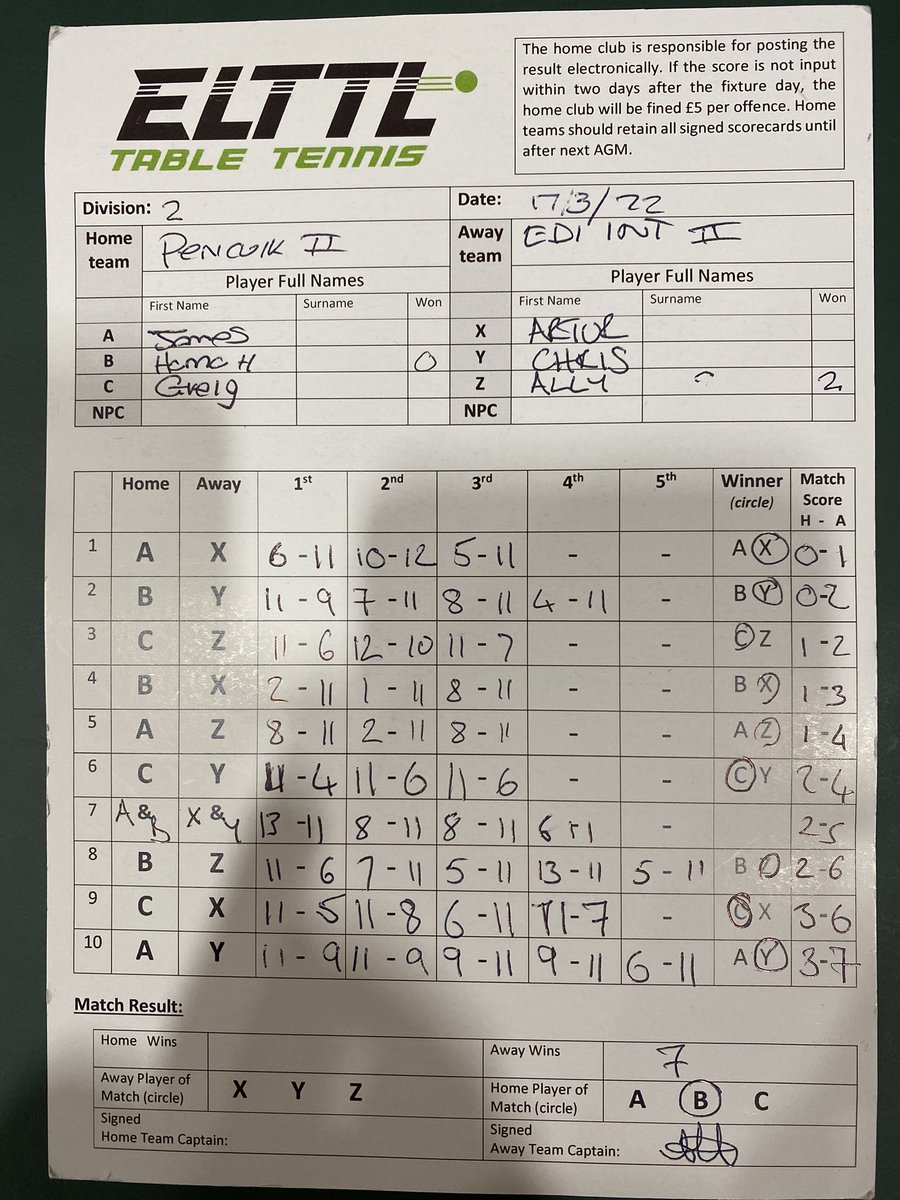 ELTTL
TABLE TENNIS
The home club is responsible for posting the
result electronically. If the score is not input
within two days after the fixture day, the
home club will be fined £5 per offence. Home
teams should retain all signed scorecards until
after next AGM.
Division: 2 Date: 17/3/22
Home team PENICUIK II Away team EDI INT II
Player Full Names Player Full Names
First Name Surname Won First Name Surname Won
A James X ARTUR
B Hama H 0 Y CHRIS
C Greig Z ALLY 2
NPC NPC
Home Away 1st 2nd 3rd 4th 5th Winner (circle) Match Score H - A
1 A X 6 - 11 10 - 12 5 - 11 - - A X 0 - 1
2 B Y 11 - 9 7 - 11 8 - 11 4 - 11 - B Y 0 - 2
3 C Z 11 - 6 12 - 10 11 - 7 - - C Z 1 - 2
4 B X 2 - 11 1 - 11 8 - 11 - - B X 1 - 3
5 A Z 8 - 11 2 - 11 8 - 11 - - A Z 1 - 4
6 C Y 11 - 4 11 - 6 11 - 6 - - C Y 2 - 4
7 A & B X & Y 13 - 11 8 - 11 8 - 11 6 - 11 - 2 - 5
8 B Z 11 - 6 7 - 11 5 - 11 13 - 11 5 - 11 B 2 - 6
9 C X 11 - 5 11 - 8 6 - 11 11 - 7 - C X 3 - 6
10 A Y 11 - 9 11 - 9 9 - 11 9 - 11 6 - 11 A Y 3 - 7
Match Result:
Home Wins Away Wins 7
Away Player of Match (circle) X Y Z Home Player of Match (circle) A B C
Signed Home Team Captain: Signed Away Team Captain: